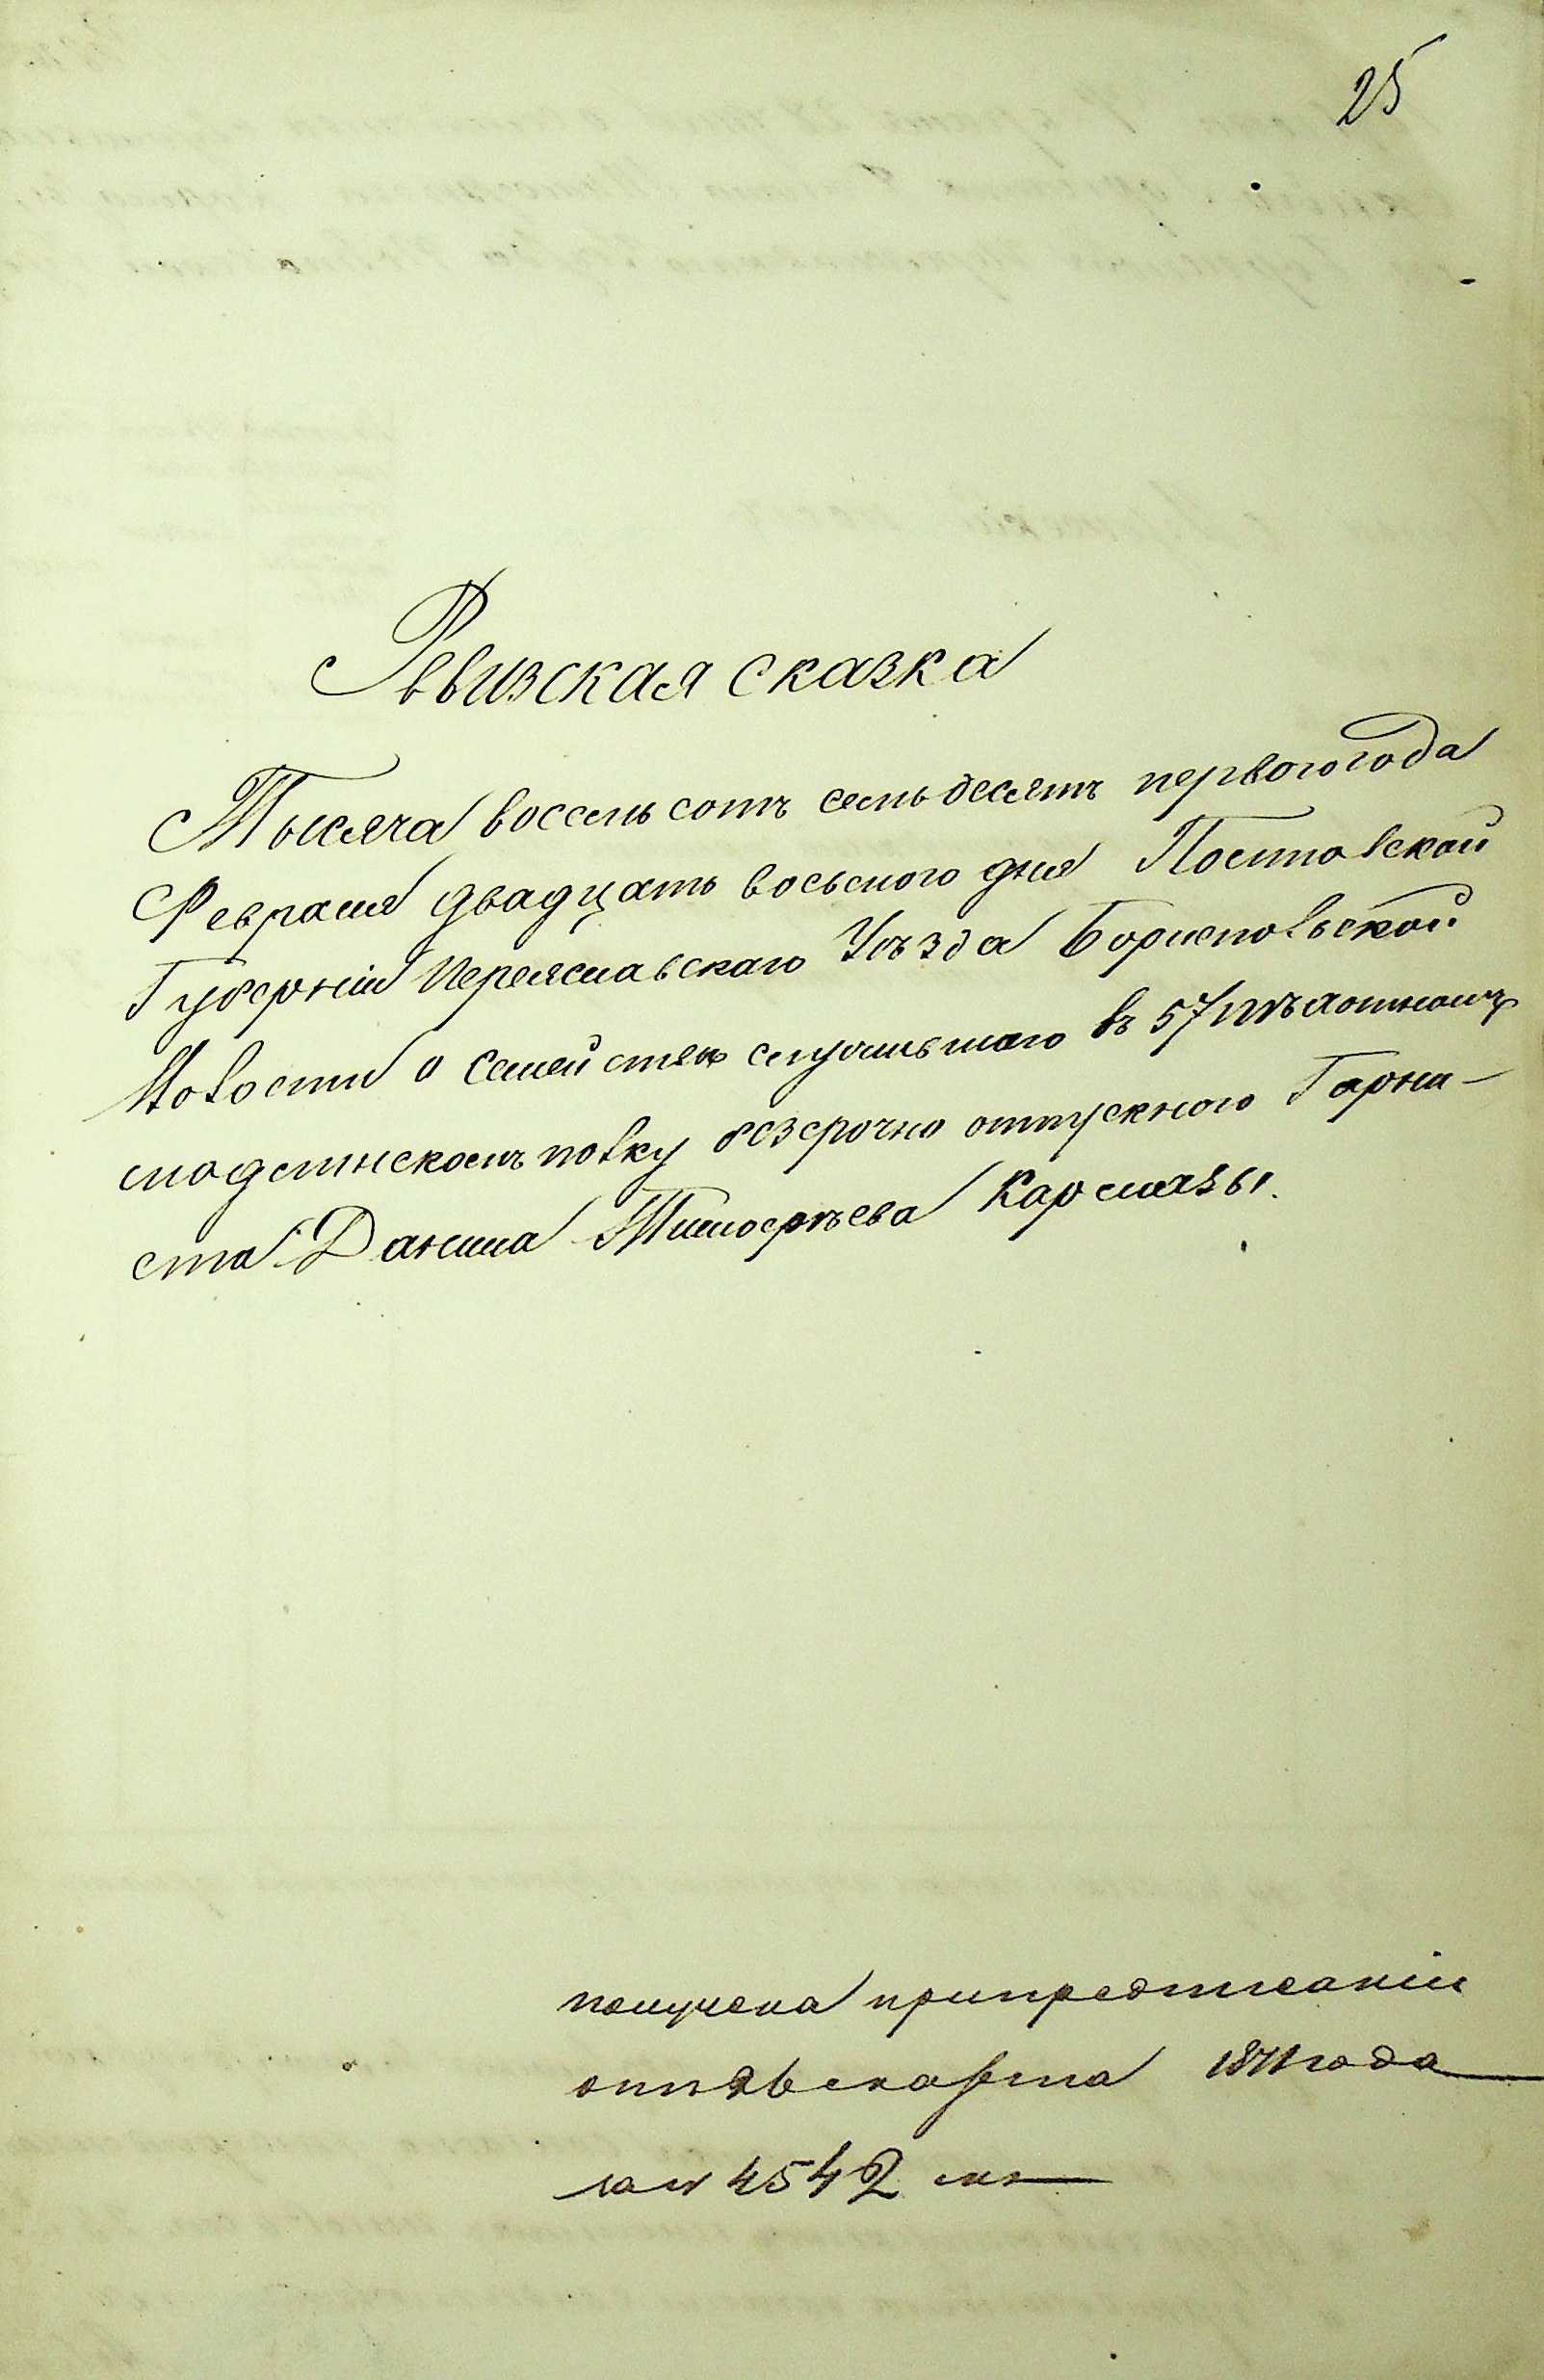 25
Ревизская сказка
Тысяча восемь сотъ семьдесятъ перваго года
Февраля двадцать восьмого дня Полтавской
Губерніи Переяславскаго Уѣзда Бориспольской
Волости о семействѣ служившаго въ 57 пѣхотномъ
модлинскомъ полку безсрочно отпускного Горни-
ста Данила Тимофѣева Кармазы.
получена при предписаніи
отъ 26 марта 1871 года
за № 4542